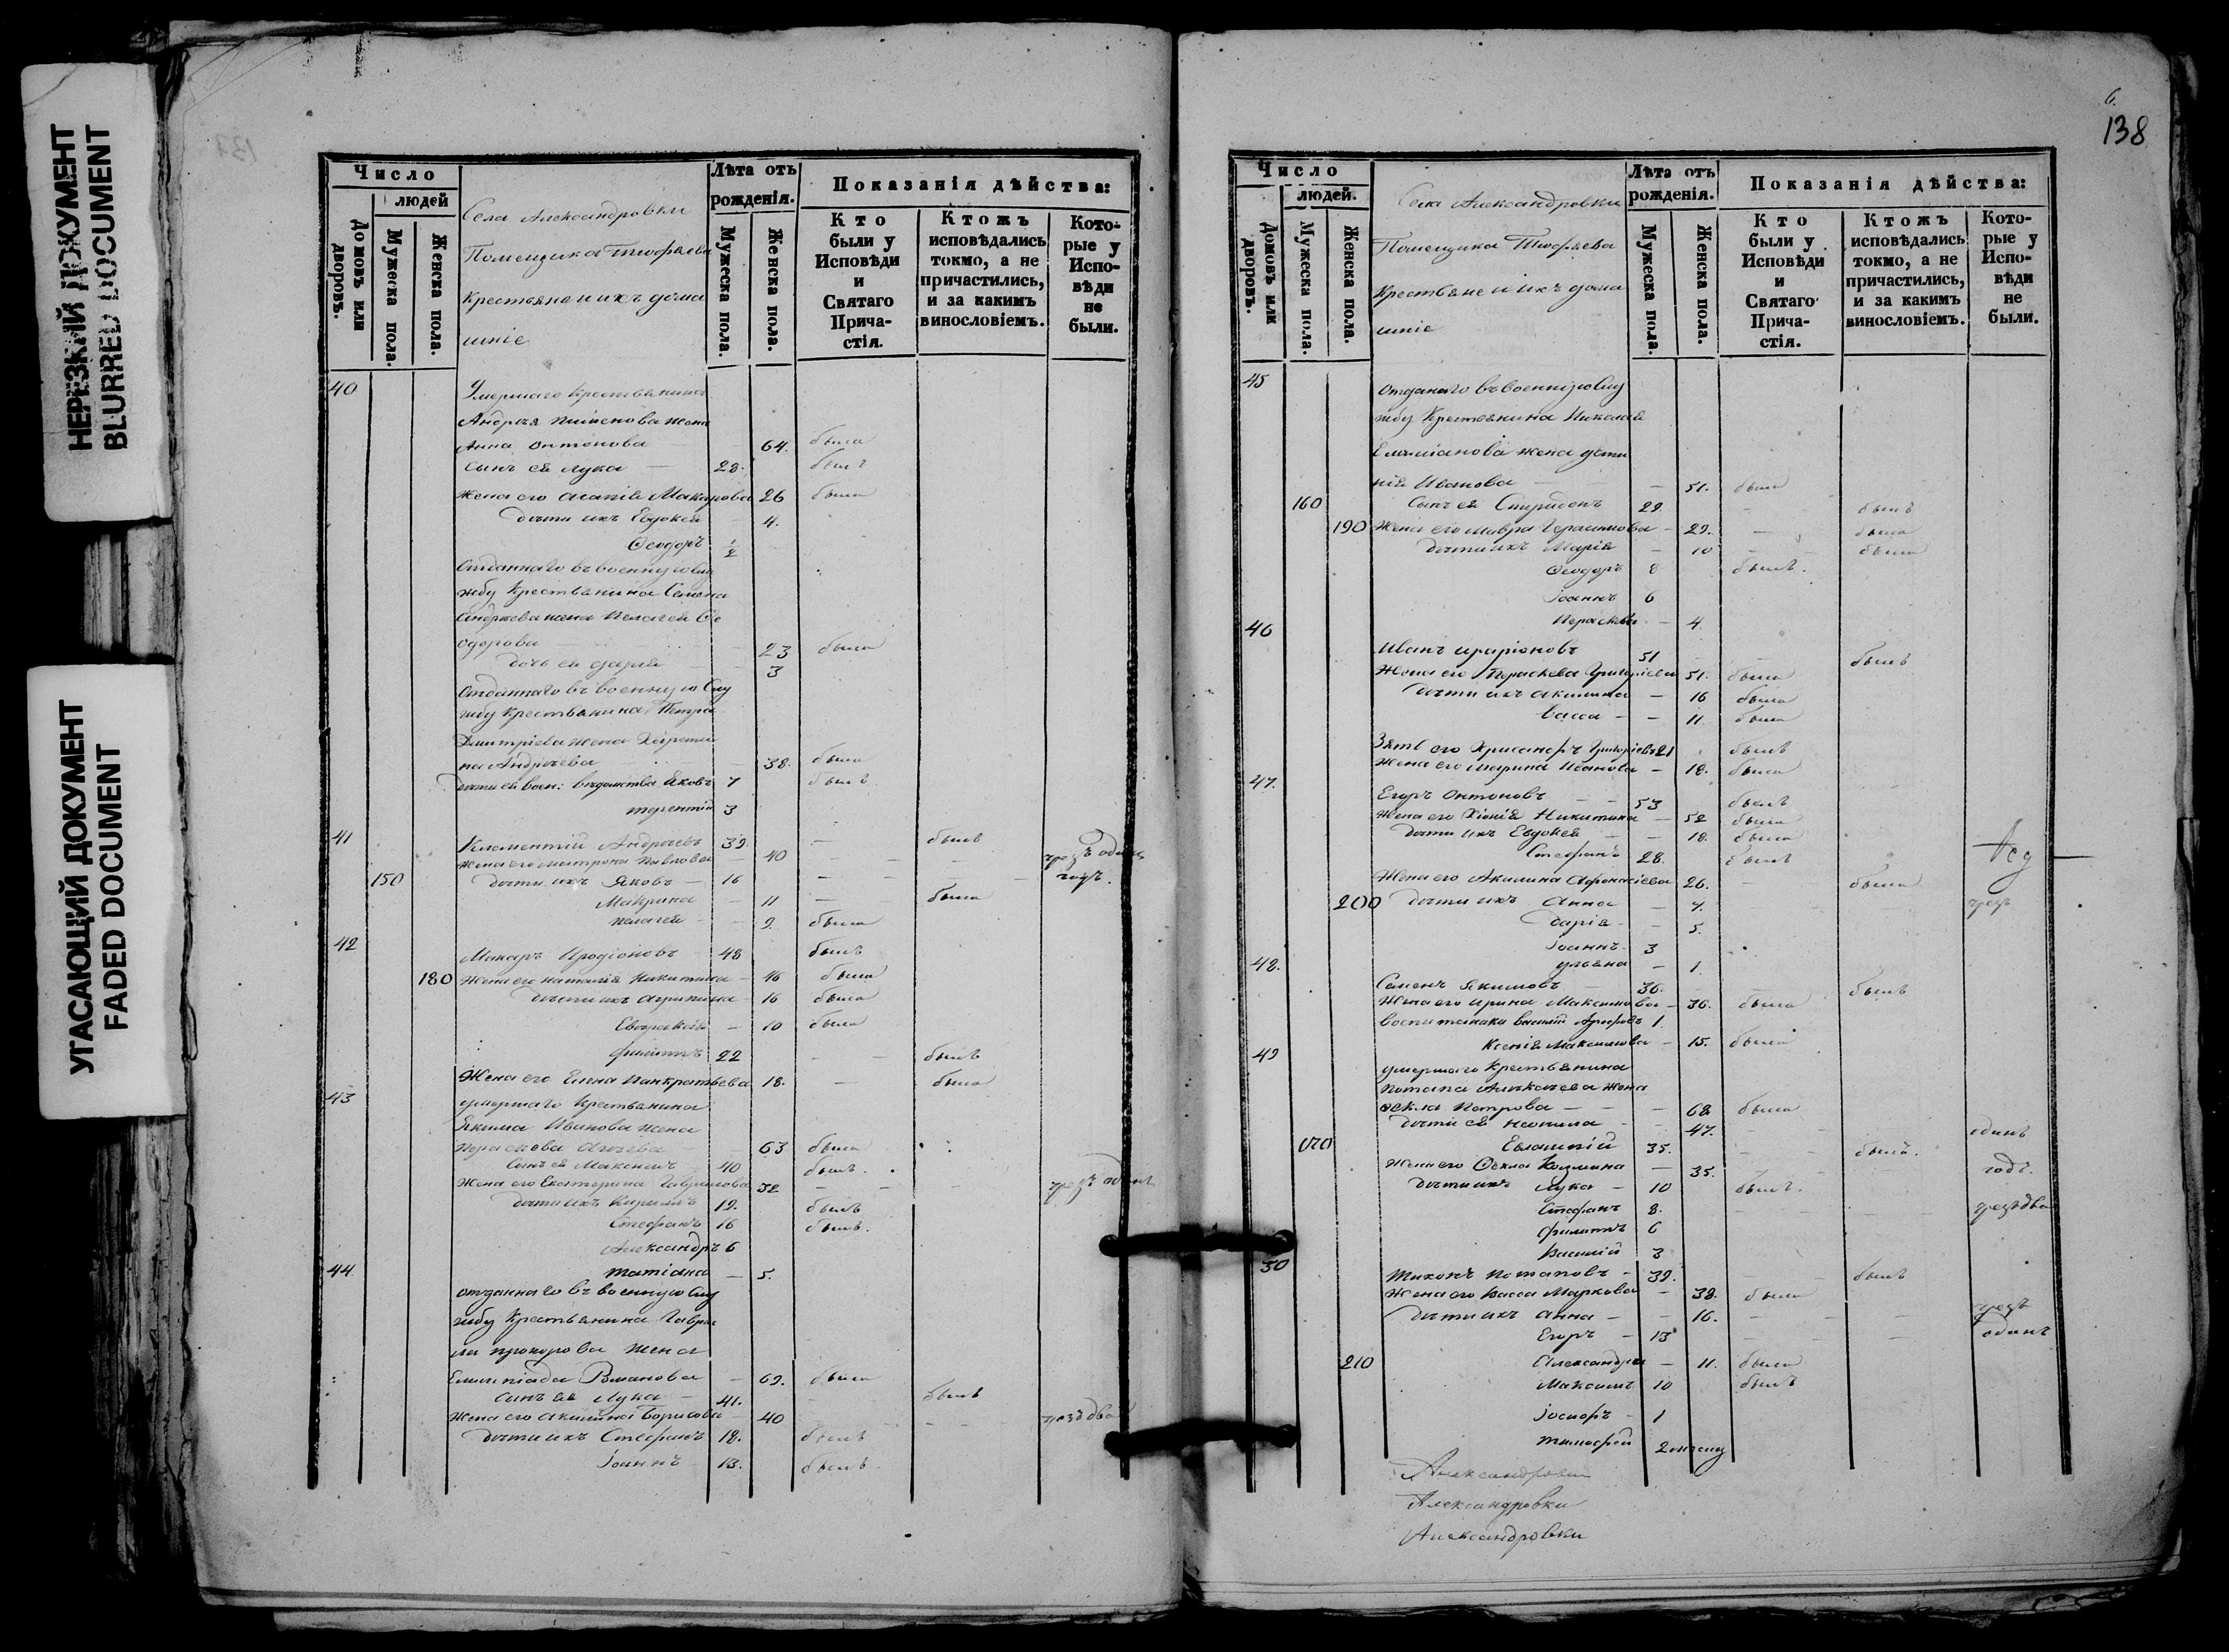 НЕРЕЗКИЙ ДОКУМЕНТ
BLURRED DOCUMENT
УГАСАЮЩИЙ ДОКУМЕНТ
FADED DOCUMENT
Число
людей
Домовъ или дворовъ.
Мужеска пола.
Женска пола.
Села Александровки
Помещика
крестьяне и ихъ дома
шніе
Лѣта отъ рожденія.
Мужеска пола.
Женска пола.
Показанія дѣйства:
Кто были у Исповѣди и Святаго Причастія.
Ктожъ исповѣдались токмо, а не причастились, и за какимъ винословіемъ.
Которые у Исповѣди не были.
40 Умершаго крестьянина
Андрея жена
Анна Антонова 64. была
сынъ ея Лука — 28. былъ
жена его Агапія Макарова 26 была
дѣти ихъ Евдокея 4.
Ѳеодоръ 1/2
Отданнаго въ военную слу
жбу крестьянина Семена
Андреева жена Пелагея Ѳе
одорова 23 была
дочь ея Дарья 3
Отданнаго въ военную слу
жбу крестьянина Петра
Дмитріева жена
на Андреева 38. была
дѣти ея воен: вѣдомства Яковъ 7 былъ
терентій 3
41 Климентій Андреевъ 39. — былъ
жена его Матрона Павлова — 40 — чрезъ одинъ
150 дѣти ихъ Яковъ — 16 — — годъ.
Макрина — 11 — была
пелагея — 9. была
42 Макаръ Иродіоновъ — 48 былъ
180 Жена его наталія Никитина — 46 была
дѣти ихъ агрипина — 16 была
— 10 была
филиппъ 22 — былъ
Жена его Елена Панкратьева 18. — была
43 умершаго крестьянина
Якима Иванова жена
Параскева 63 была
Сынъ ея Максимъ 40 былъ.
Жена его Екатерина Гаврилова 32 — — чрезъ одинъ
дѣти ихъ Кирилъ 19. былъ
Стефанъ 16 былъ.
Александръ 6
44 татіана — 5.
отданнаго въ военную слу
жбу крестьянина Гаври
ла прохорова жена
Романова — 69. была
сынъ ея Лука — 41. — былъ
жена его акилина Борисова — 40 — — чрезъ два
дѣти ихъ Стефанъ 18. былъ
Іоаннъ 13. былъ
6.
138
Число
людей.
Домовъ или дворовъ.
Мужеска пола.
Женска пола.
Села Александровки
Помещика
крестьяне и ихъ дома
шніе
Лѣта отъ рожденія.
Мужеска пола.
Женска пола.
Показанія дѣйства:
Кто были у Исповѣди и Святаго Причастія.
Ктожъ исповѣдались токмо, а не причастились, и за какимъ винословіемъ.
Которые у Исповѣди не были.
45 отданаго въ военную слу
жбу крестьянина Николая
Емеліанова жена
Иванова — 51. была
160 Сынъ ея Спиридонъ 29. — былъ
190 Жена его Мавра Герасимова — 29. — была
дѣти ихъ Марія — 10 — была
Ѳеодоръ 8 былъ.
Іоаннъ 6
Параскева — 4.
46 Иванъ 51 былъ
Жена его Параскева Григоріева 51. была
дѣти ихъ акилина — 16 была
васса — — 11. была
Зять его Григоріевъ 21 былъ
Жена его Марина Иванова — 18. была
47. Егоръ Антоновъ — 53 былъ
Жена его Хіонія Никитина — 52 была
дѣти ихъ Евдокея — — 18. была
Стефанъ 28. былъ
Жена его Акилина Афонасіева 26. — была
200 дѣти ихъ Анна — 7. чрезъ
дарія — — 5.
Іоаннъ 3
ульяна — 1.
48. Семенъ Якимовъ — 36. — былъ
Жена его ирина Максимова — 36. была
воспитаники василій 1.
Ксенія Максимова — 15. была
49 умершаго крестьянина
потапа жена
Ѳекла Петрова — — 68 была
дѣти ея неонила — — 47. — одинъ
170 Евлампій 35. — былъ.
Жена его Ѳекла Козмина — 35. — годъ.
дѣти ихъ Лука — 10 былъ.
Стефанъ 8. — — чрезъ два
филиппъ 6
василій 3
50 Тихонъ потаповъ — 39. — былъ
Жена его васса Маркова — 38. была
дѣти ихъ анна — — 16. — чрезъ
Егоръ — 13 — — одинъ
210 Александра — 11. была
Максимъ 10 былъ
Іосифъ — 1
тимофей 2 месяц
Александровки
Александровки
Александровки